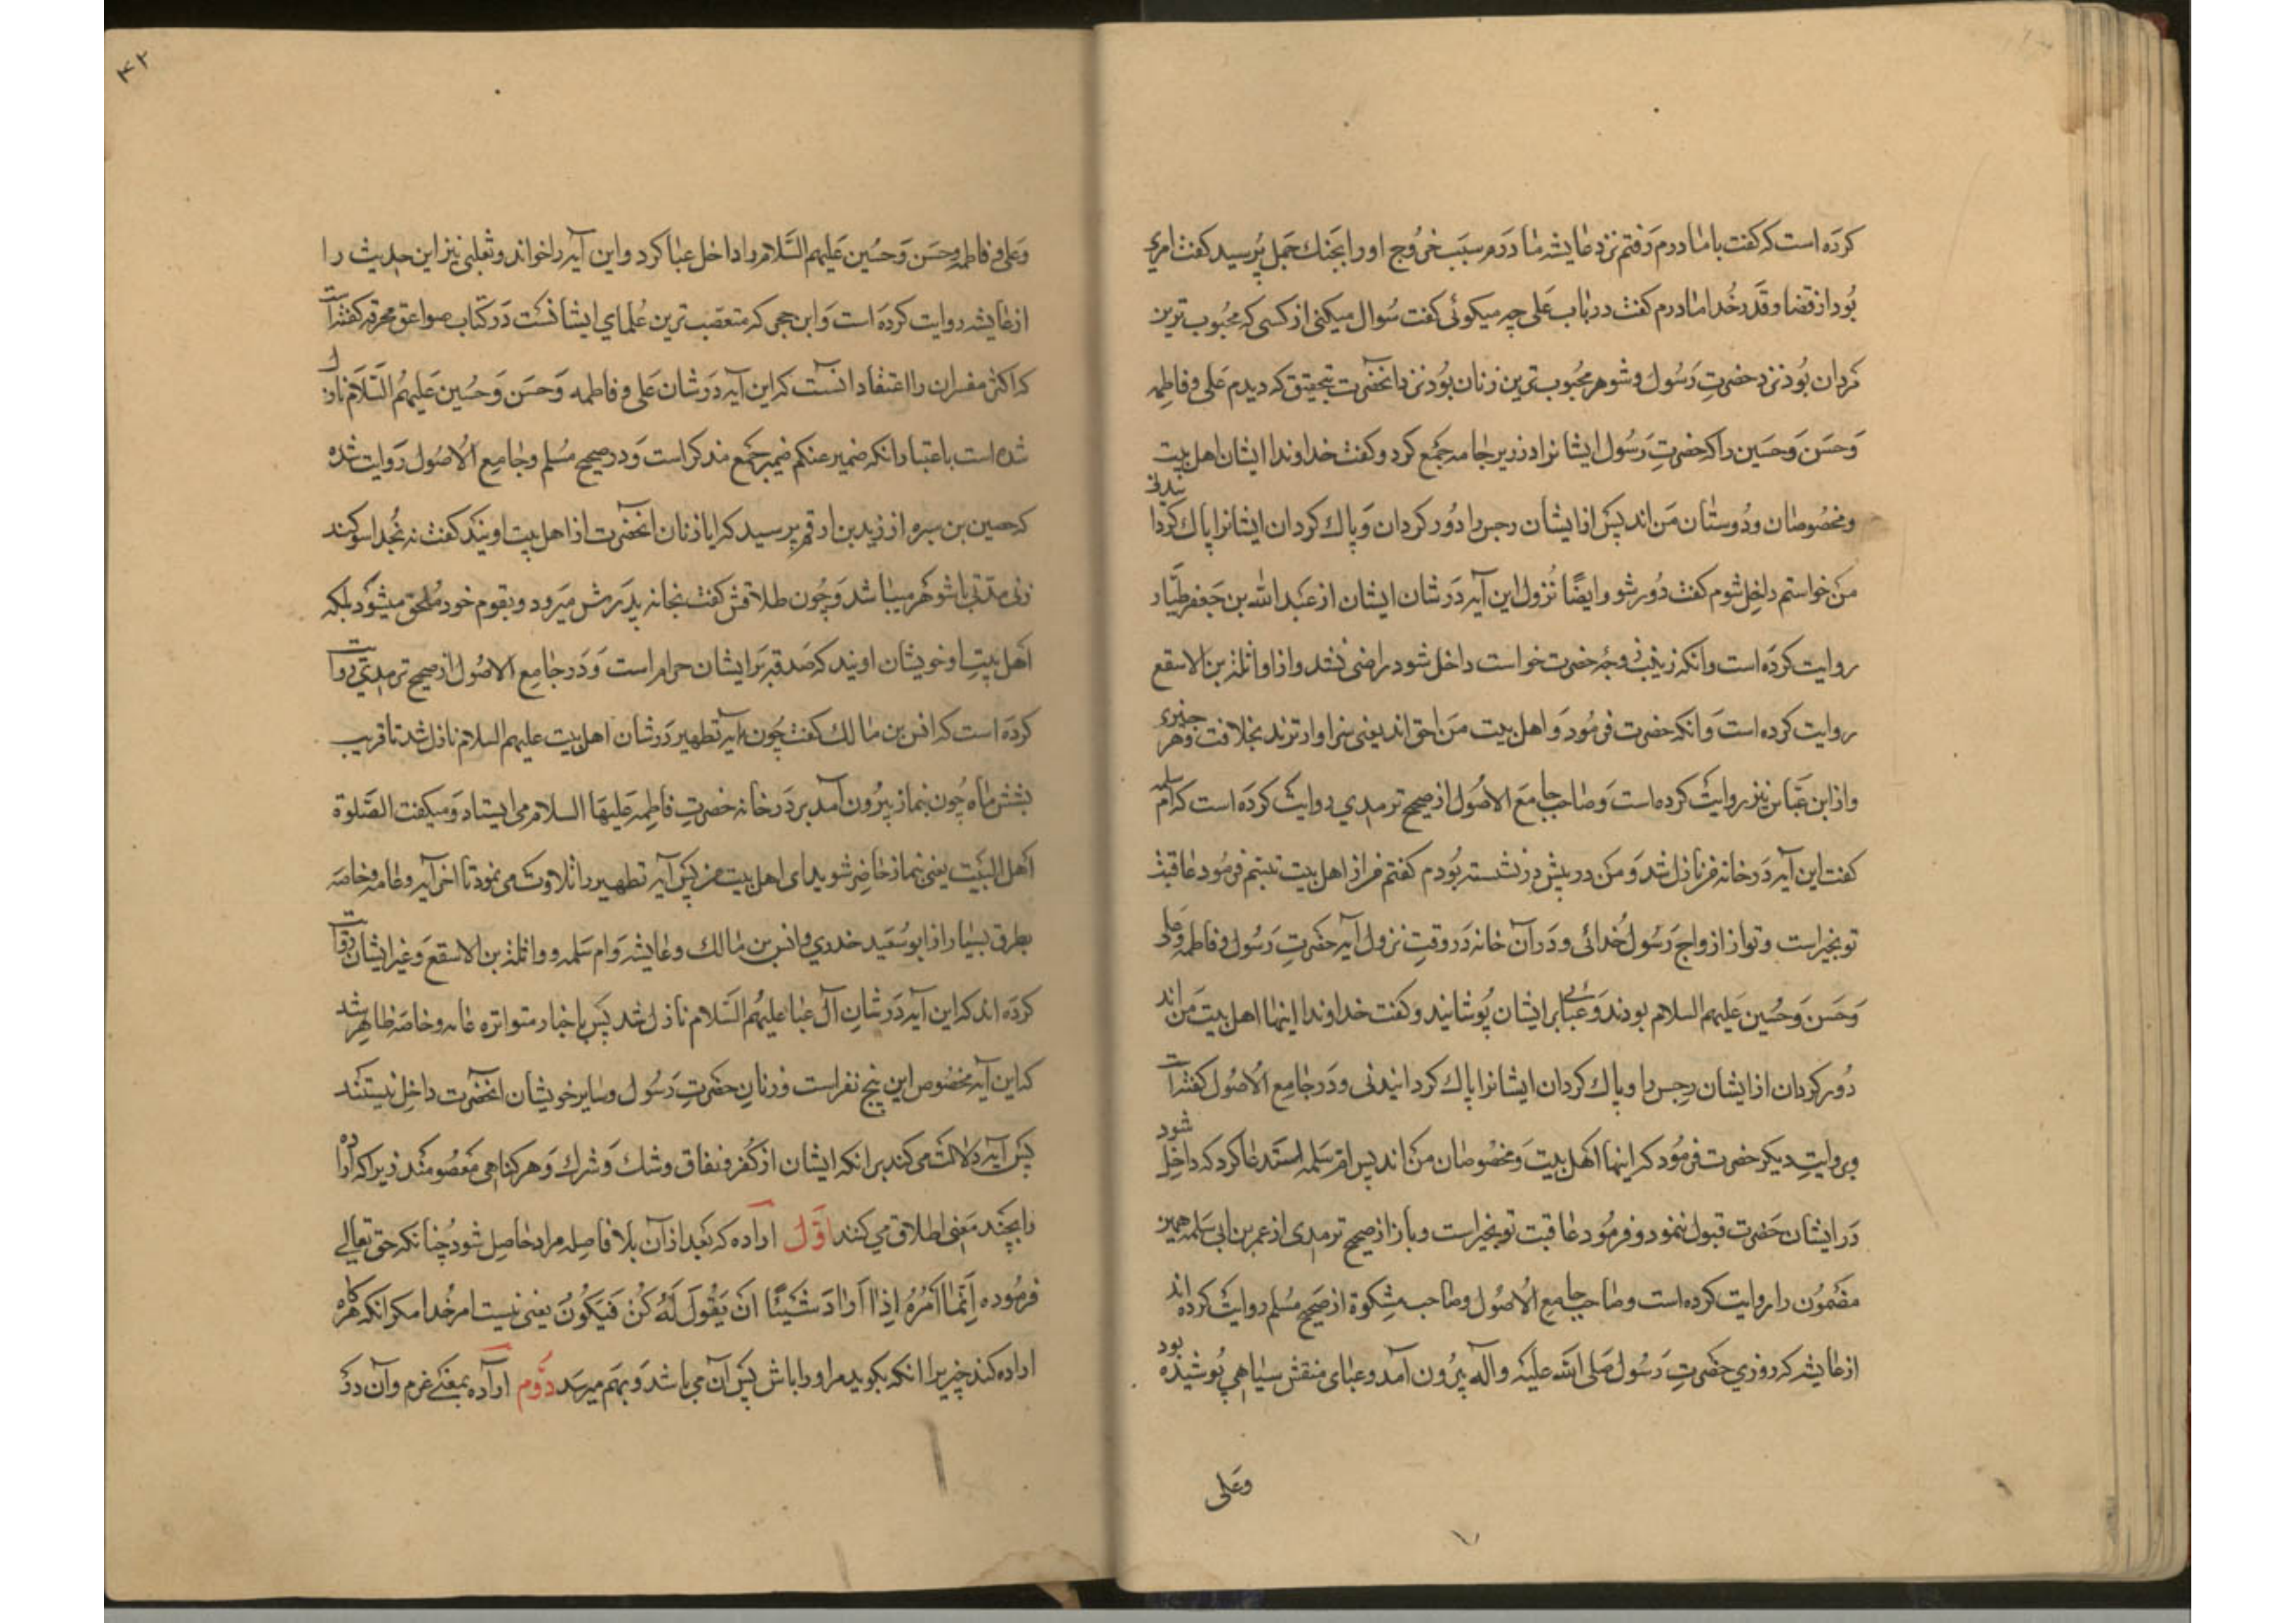 کرده است که گفت با مادرم رفتم نزد عایشه مادرم سبب خروج او را بجنك جمل پرسید گفت امری
بود از قضا و قدر خدا مادرم گفت در باب علی چه میگوئی گفت سؤال میکنی از کسی که محبوب ترین
مردان بود نزد حضرت رسول و شوهر محبوب ترین زنان بود نزد آنحضرت بتحقیق که دیدم علی و فاطمه
و حسن و حسین را که حضرت رسول ایشانرا در زیر جامه جمع کرد و گفت خداوندا ایشان اهل بیت
و مخصوصان و دوستان من اند پس از ایشان رجس را دور گردان و پاك گردان ایشانرا پاك کردانیدنی
من خواستم داخل شوم گفت دور شو و ایضًا نزول این آیه در شان ایشان از عبد الله بن جعفر طیّار
روایت کرده است و آنکه زینب زوجه حضرت خواست داخل شود راضی نشد و از واثلة بن الاسقع
روایت کرده است و آنکه حضرت فرمود و اهل بیت من احق اند یعنی سزاوارترند بخلافت و هر چیزی
و از ابن عبّاس نیز روایت کرده است و صاحب جامع الاصول از صحیح ترمدی روایت کرده است که ام سلمه
گفت این آیه در خانه من نازل شد و من در پیش در نشسته بودم گفتم من از اهل بیت نیستم فرمود عاقبت
تو بخیر است و تو از ازواج رسول خدائی و در آن خانه در وقت نزول آیه حضرت رسول و فاطمه و علی
و حسن و حسین علیهم السلام بودند و عبائی بر ایشان پوشانید و گفت خداوندا اینها اهل بیت من اند
دور گردان از ایشان رجس را و پاك گردان ایشانرا پاك گردانیدنی و در جامع الاصول گفته است
و بروایت دیگر حضرت فرمود که اینها اهل بیت و مخصوصان من اند پس ام سلمه استدعا کرد که داخل شود
در ایشان حضرت قبول ننمود و فرمود عاقبت تو بخیر است و باز از صحیح ترمدی از عمر بن ابی سلمه همین
مضمون را روایت کرده است و صاحب جامع الاصول و صاحب مشکوة از صحیح مسلم روایت کرده اند
از عایشه که روزی حضرت رسول صلی الله علیه و آله بیرون آمد و عبای منقش سیاهی پوشیده بود
وعلی
۴۲
و علی و فاطمه و حسن و حسین علیهم السّلام را داخل عبا کرد و این آیه را خواند و ثعلبی نیز این حدیث را
از عایشه روایت کرده است و ابن حجر که متعصب ترین علمای ایشانست در کتاب صواعق محرقه گفته است
که اکثر مفسران را اعتقاد آنست که این آیه در شان علی و فاطمه و حسن و حسین علیهم السّلام نازل
شده است باعتبار آنکه ضمیر عنکم ضمیر جمع مذکر است و در صحیح مسلم و جامع الاصول روایت شده
که حصین بن سبره از زید بن ارقم پرسید که ایا زنان آنحضرت از اهل بیت اویند گفت نه بخدا سوکند
زن مدّتی با شوهر میباشد و چون طلاقش گفت بخانه پدرش میرود و بقوم خود ملحق میشود بلکه
اهل بیت او خویشان اویند که صدقه بر ایشان حرام است و در جامع الاصول از صحیح ترمدی روایت
کرده است که انس بن مالك گفت چون آیه تطهیر در شان اهل بیت علیهم السلام نازل شد تا قریب
بشش ماه چون بنماز بیرون آمد بر در خانه حضرت فاطمه علیها السلام می ایستاد و میگفت الصّلوة
اهل البیت یعنی بنماز حاضر شوید ای اهل بیت من پس آیه تطهیر را تلاوت می نمود تا اخر آیه و عامه و خاصه
بطرق بسیار از ابو سعید خدری و انس بن مالك و عایشه و ام سلمه و واثلة بن الاسقع و غیر ایشان روایت
کرده اند که این آیه در شان آل عبا علیهم السّلام نازل شد پس باخبار متواتره عامه و خاصه ظاهر شد
که این آیه مخصوص این پنج نفر است و زنان حضرت رسول و سایر خویشان آنحضرت داخل نیستند
پس آیه دلالت می کند بر آنکه ایشان از کفر و نفاق و شك و شرك و هر کناهی معصومند زیرا که اراده
را بچند معنی اطلاق می کنند اوّل اراده که بعد از آن بلا فاصله مراد حاصل شود چنانکه حق تعالی
فرموده اِنَّما اَمْرُهُ اِذا اَرادَ شَیْئًا اَنْ یَقُولَ لَهُ کُنْ فَیَکُونُ یعنی نیست امر خدا مگر آنکه هرگاه
اراده کند چیزی را آنکه بگوید مر او را باش پس آن می باشد و بهم میرسد دوّم اراده بمعنی عزم و آن در